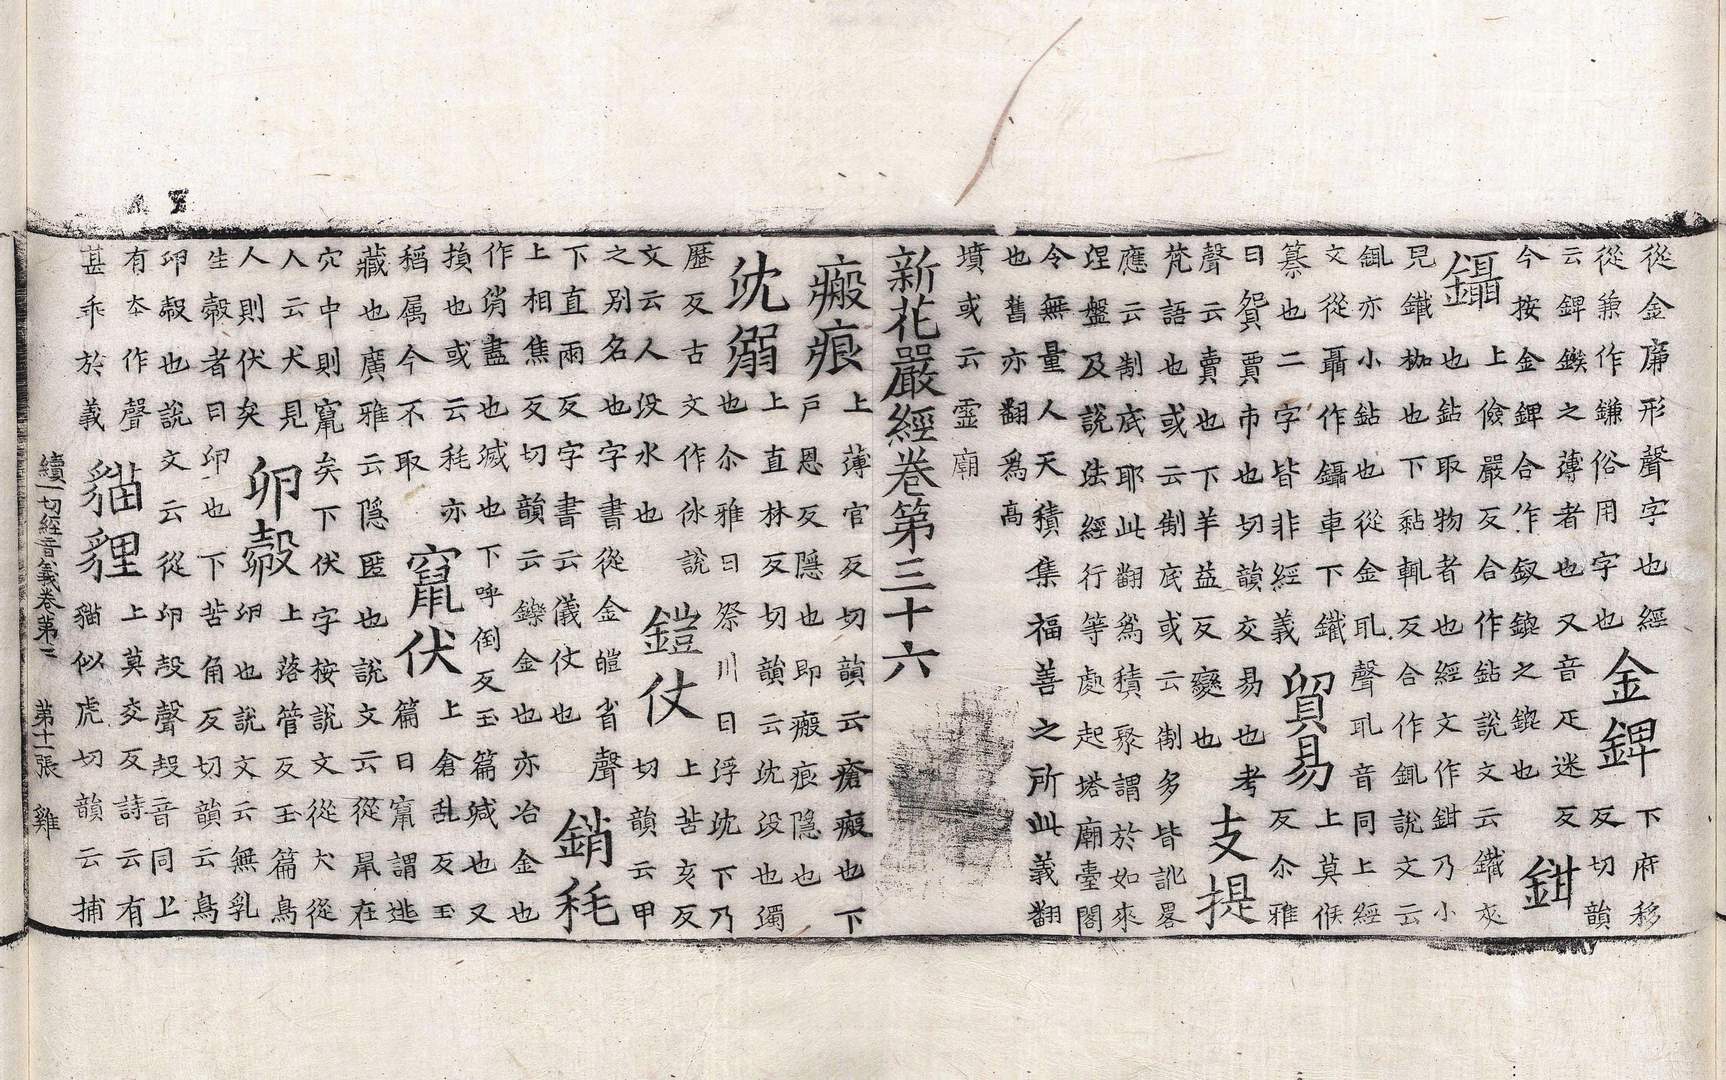 從金廉形聲字也經
從兼作鎌俗用字也
金錍
下府移
反切韻
云錍鏃之薄者也又音疋迷反
今按金錍合作鈹鎞之鎞也
鉗
鑷
上儉嚴反合作鉆說文云鐵夾
也鉆取物者也經文作鉗乃小
皃鐵枷也下黏輒反合作鈮說文云
鈮亦小鉆也從金耴聲耴音同上經
文從聶作鑷車下鐵
纂也二字皆非經義
貿易
上莫候
反尒雅
曰貿賈市也切韻交易也考
聲云賣也下羊益反變也
支提
梵語也或云制底或云制多皆訛畧
應云制底耶此翻爲積聚謂於如來
涅盤及說法經行等處起塔廟臺閣
令無量人天積集福善之所此義翻
也舊亦翻爲高
墳或云靈廟
新花嚴經卷第三十六
瘢痕
上薄官反切韻云瘡瘢也下
戶恩反隱也即瘢痕隱也
沈溺
上直林反切韻云沈没也濁
也尒雅曰祭川曰浮沈下乃
歷反古文作㲻說
文云人没水也
鎧仗
上苦亥反
切韻云甲
之別名也字書從金皚省聲
下直兩反字書云儀仗也
銷秏
上相焦反切韻云鑠金也亦冶金也
作消盡也滅也下呼倒反玉篇減也又
損也或云秏亦
稱属今不取
竄伏
上倉乱反玉
篇曰竄謂逃
藏也廣雅云隱匿也說文云從鼠在
穴中則竄矣下伏字按說文從犬從
人云犬見
人則伏矣
卵㲉
上落管反玉篇鳥
卵也說文云無乳
生㲉者曰卵也下苦角反切韻云鳥
卵㲉也說文云從卵𣪊聲𣪊音同上
有本作聲
甚乖於義
貓貍
上莫交反詩云有
貓似虎切韻云捕
續一切經音義卷第二　第十一張　雞